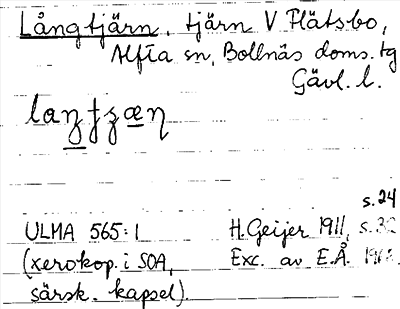 Långtjärn, tjärn V Flätsbo,
Alfta sn, Bollnäs doms. tg
Gävl. l.
s. 24
ULMA 565:1 H. Geijer 1911, s. 32
(xerokop. i SOA, Exc. av E.Å.
särsk. kapsel).